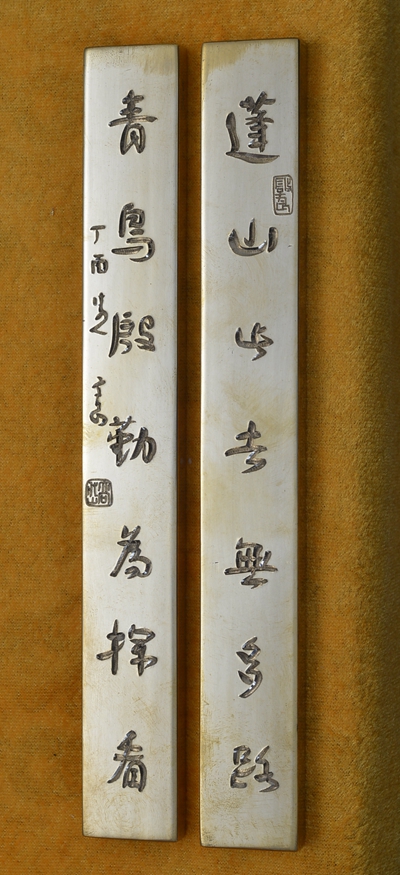 蓬山此去無多路
青鳥殷勤為探看
丁酉